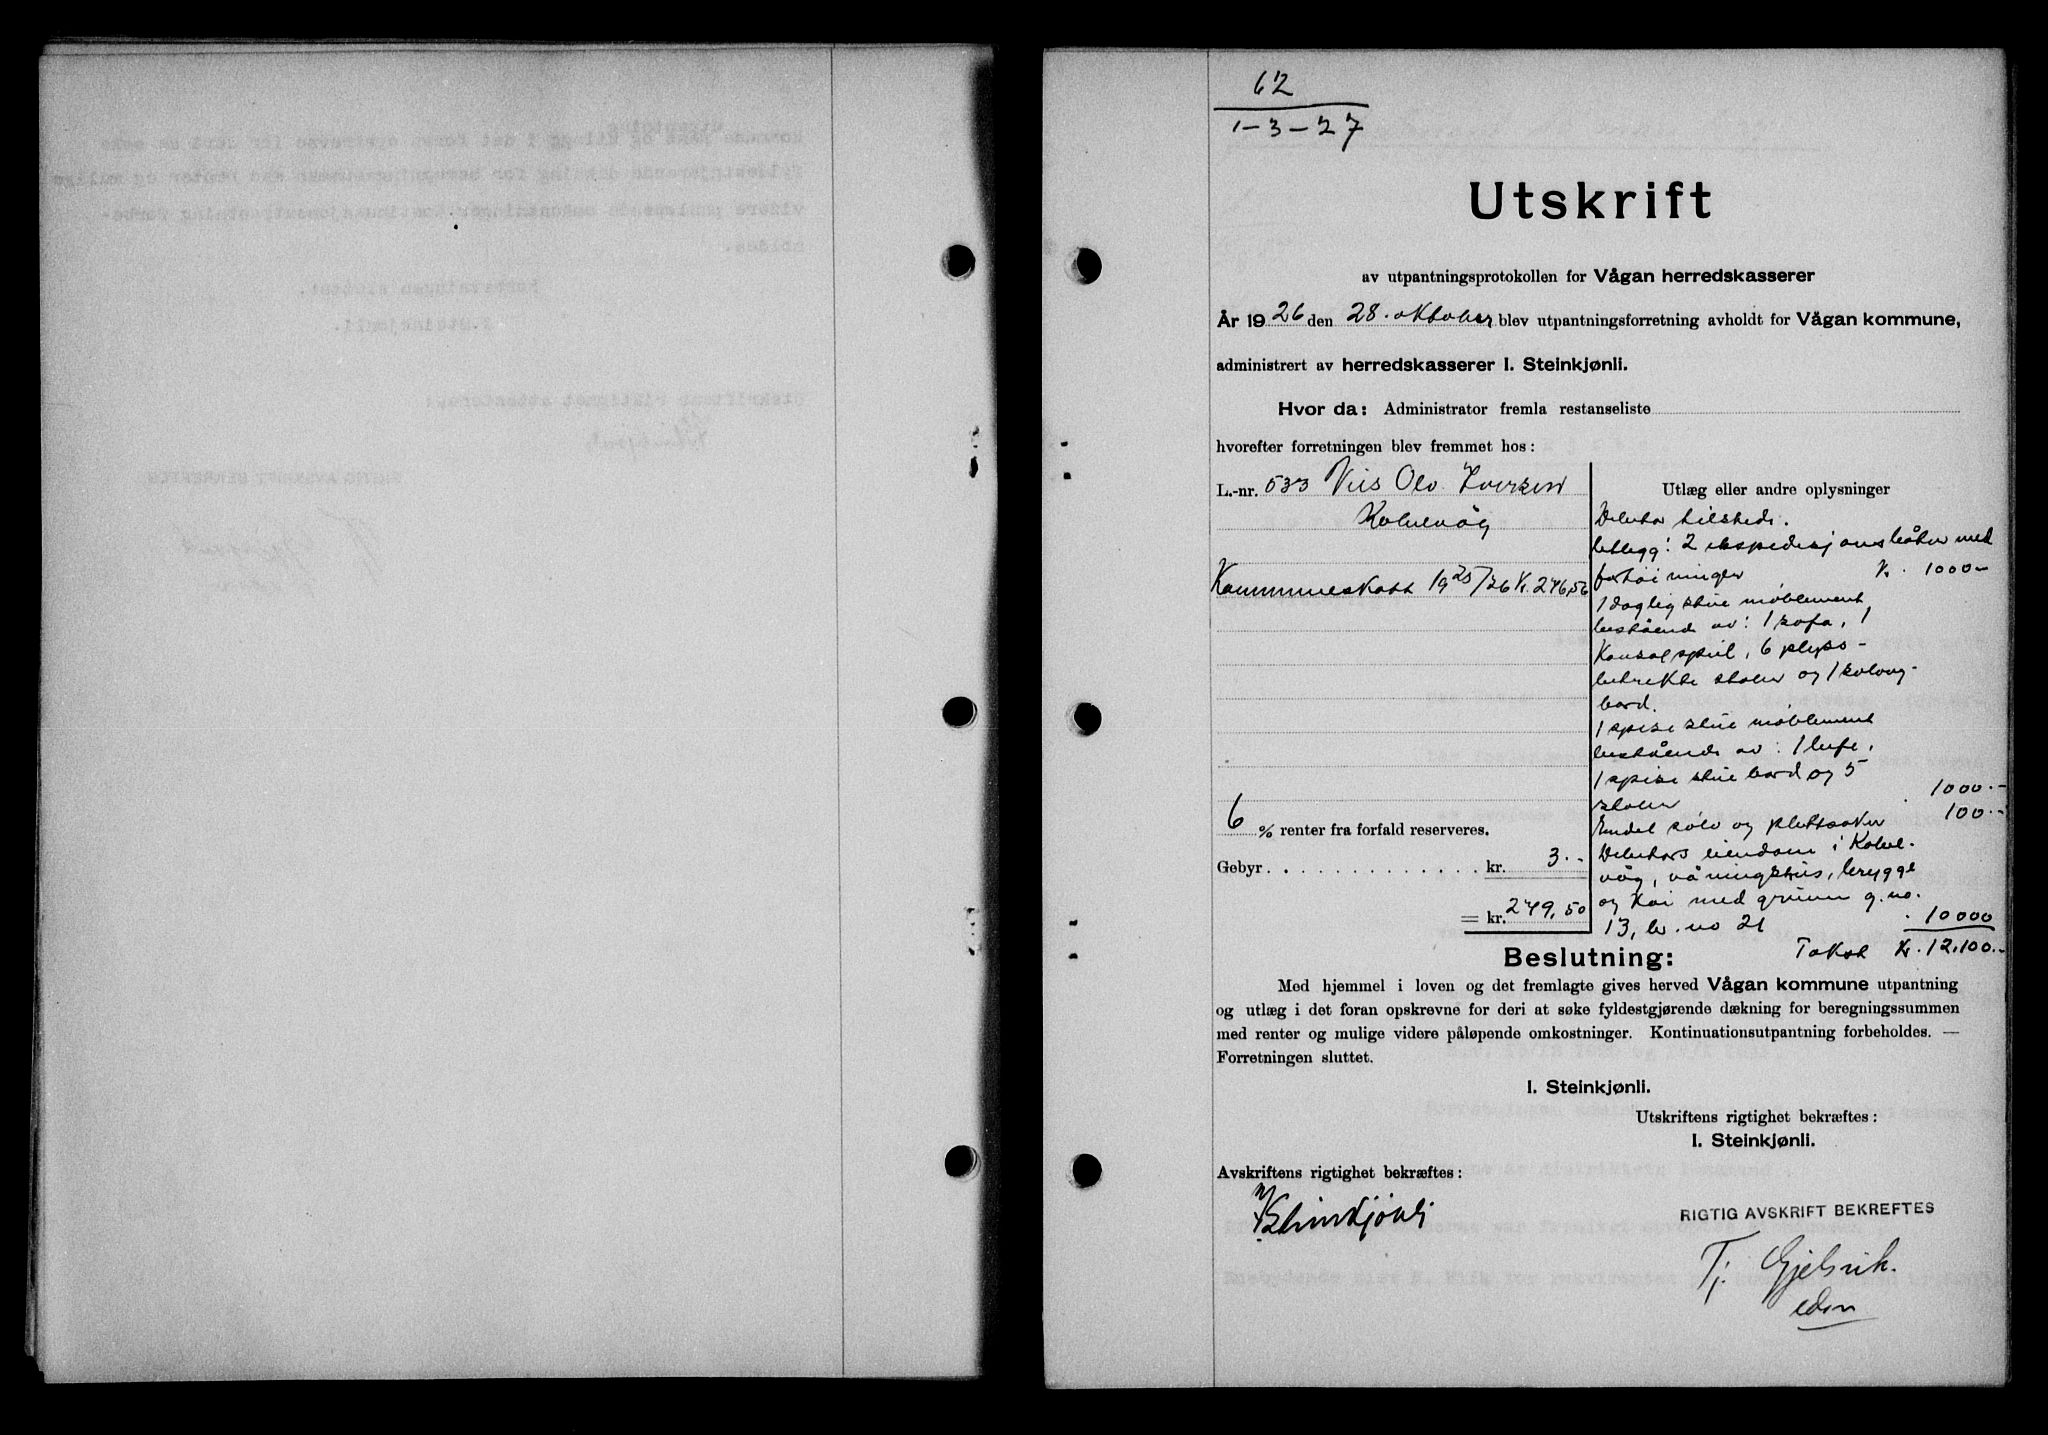 62
1-3-27
Utskrift
av utpantningsprotokollen for Vågan herredskasserer
År 1926 den 28. oktober blev utpantningsforretning avholdt for Vågan kommune,
administrert av herredskasserer I. Steinkjønli.
Hvor da: Administrator fremla restanseliste
hvorefter forretningen blev fremmet hos:
L.-nr. 533 Nils Olv Iversen
Kalvevåg
Kommuneskatt 1925/26 Kr. 246,56
6 % renter fra forfald reserveres.
Gebyr . . . . . . . . . . . . kr. 3.-
= kr. 249,50
Utlæg eller andre oplysninger
Debitor tilstede.
Utlegg: 2 ekspedisjonsbåter med
fortøininger Kr. 1000-
1 daglig stue møblement,
bestående av: 1 sofa, 1
Konsolspeil, 6 plyss-
betrekte stoler og 1 salong-
bord.
1 spise stue møblement
bestående av: 1 bufe,
1 spise stue bord og 5
stoler 1000.-
Endel sølv og plettsaker 100.-
Debitors eiendom i Kalve-
våg, våningshus, brygge
og Kai med grunn g.no.
13, br. no 21 10000
Takst Kr. 12,100.-
Beslutning:
Med hjemmel i loven og det fremlagte gives herved Vågan kommune utpantning
og utlæg i det foran opskrevne for deri at søke fyldestgjørende dækning for beregningssummen
med renter og mulige videre påløpende omkostninger. Kontinuationsutpantning forbeholdes. —
Forretningen sluttet.
I. Steinkjønli.
Utskriftens rigtighet bekræftes:
I. Steinkjønli.
Avskriftens rigtighet bekræftes:
Steinkjønli
RIGTIG AVSKRIFT BEKREFTES
Tj. Gjelsvik.
edsv